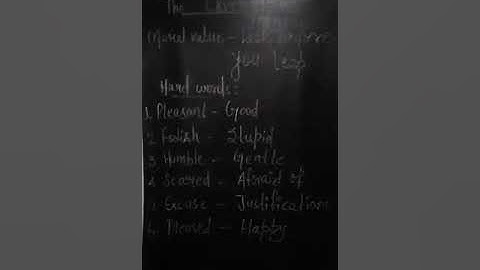 The
Moral value - Look before
you leap
Hard words:
1. Pleasant - Good
2. Foolish - Stupid
3. Humble - Gentle
4. Scared - Afraid of
5. Excuse - Justification
6. Pleased - Happy